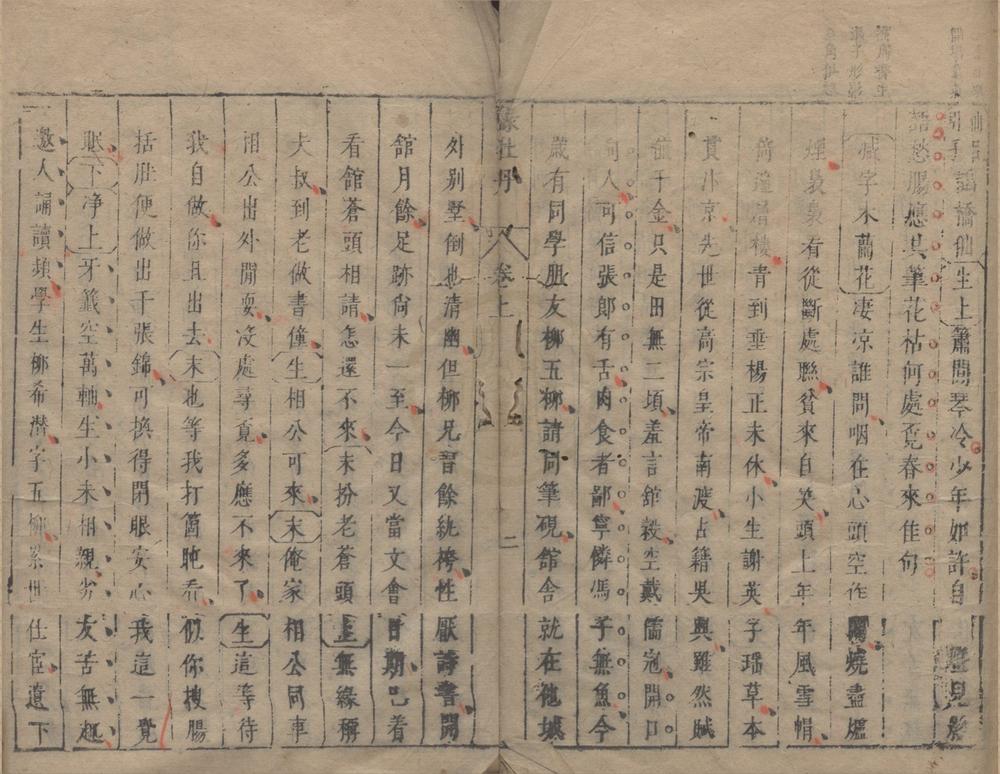 引謠橋仙生上簫閒琴冷少年如許自見影
語愁腸應共筆花枯何處覓春來佳句
減字木蘭花凄凉誰問咽在心頭空作悶燒盡爐
煙裊裊看從斷處聯貧來自笑頭上年年風雪帽
倚遍層樓青到垂楊正未休小生謝英字瑶草本
貫汴京先世從高宗皇帝南渡占籍吳興雖然賦
値千金只是田無二頃羞言舘穀空戴儒冠開口
向人可信張郎有舌肉食者鄙寧憐馮子無魚今
歲有同學朋友柳五柳請同筆硯館舍就在他城
綠牡丹 卷上 二
外別墅倒也清幽但柳兄習餘紈袴性厭詩書開
館月餘足跡尚未一至今日又當文會日期已着
看館蒼頭相請怎還不來末扮老蒼頭上無緣稱
大叔到老做書僮生相公可來末俺家相公同車
相公出外閒耍沒處尋覓多應不來了生這等待
我自做你且出去末也等我打箇盹乔似你搜腸
括肚便做出千張錦可換得閉眼安心我這一覺
眠下净上牙籤空萬軸生小未相親劣友苦無趣
邀人誦讀頻學生柳希潜字五柳累世仕宦遺下